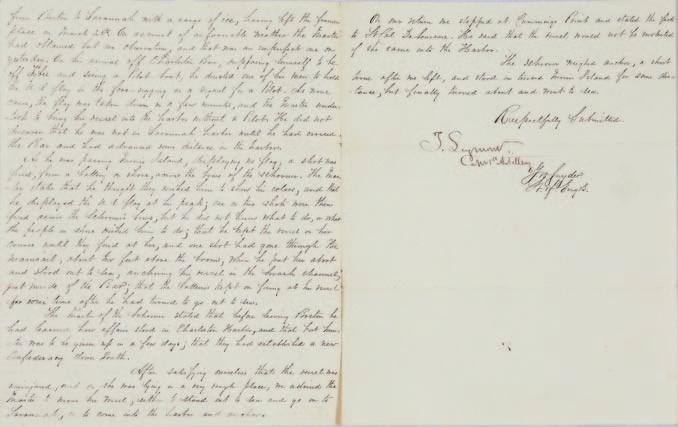 from Boston to Savannah with a cargo of ice, having left the former
place on March 26th. On account of unfavorable weather the Master
had obtained but one observation, and that was an imperfect one on
yesterday. On his arrival off Charleston Bar, supposing himself to be
off Tybee and seeing a Pilot boat, he directed one of his men to hoist
the U.S. flag in the fore-rigging as a signal for a Pilot. As no one
came, the flag was taken down in a few minutes, and the Master under-
took to bring his vessel into the harbor without a Pilot. He did not
discover that he was not in Savannah harbor until he had crossed
the Bar and had advanced some distance in the harbor.
As he was passing Morris Island, displaying no flag, a shot was
fired from a battery on shore, across the bows of the schooner. The Mas-
ter states that he thought they wished him to show his colors, and that
he displayed the U.S. flag at his peak; one or two shots were then
fired across the Schooner's bows, but he did not know what to do, or what
the people on shore wished him to do; that he kept the vessel on her
course until they fired at her, and one shot had gone through the
mainsail, about two feet above the boom, when he put her about
and stood out to sea, anchoring his vessel in the Swash channel,
just inside of the Bar; that the batteries kept on firing at his vessel
for some time after he had turned to go out to sea.
The Master of the Schooner stated that before leaving Boston he
had learned how affairs stood in Charleston Harbor, and that Fort Sum-
ter was to be given up in a few days; that they had established a new
Confederacy down South.
After satisfying ourselves that the vessel was
uninjured, and as she was lying in a very rough place, we advised the
Master to move his vessel, either to stand out to sea and go on to
Savannah, or to come into the harbor and anchor.
On our return we stopped at Cummings Point and stated the facts
to Lt Col De Saussure. He said that the vessel would not be molested
if she came into the Harbor.
The Schooner weighed anchor, a short
time after we left, and stood in toward Morris Island for some dis-
tance, but finally turned about and went to sea.
Respectfully Submitted.
T. Seymour.
Capt. 1st Artillery
G W Snyder
Lt. of Engrs.